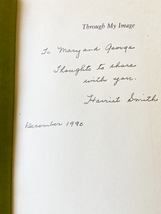 Through My Image
To Mary and George
Thoughts to share
with you.
Harriet Smith
December 1990